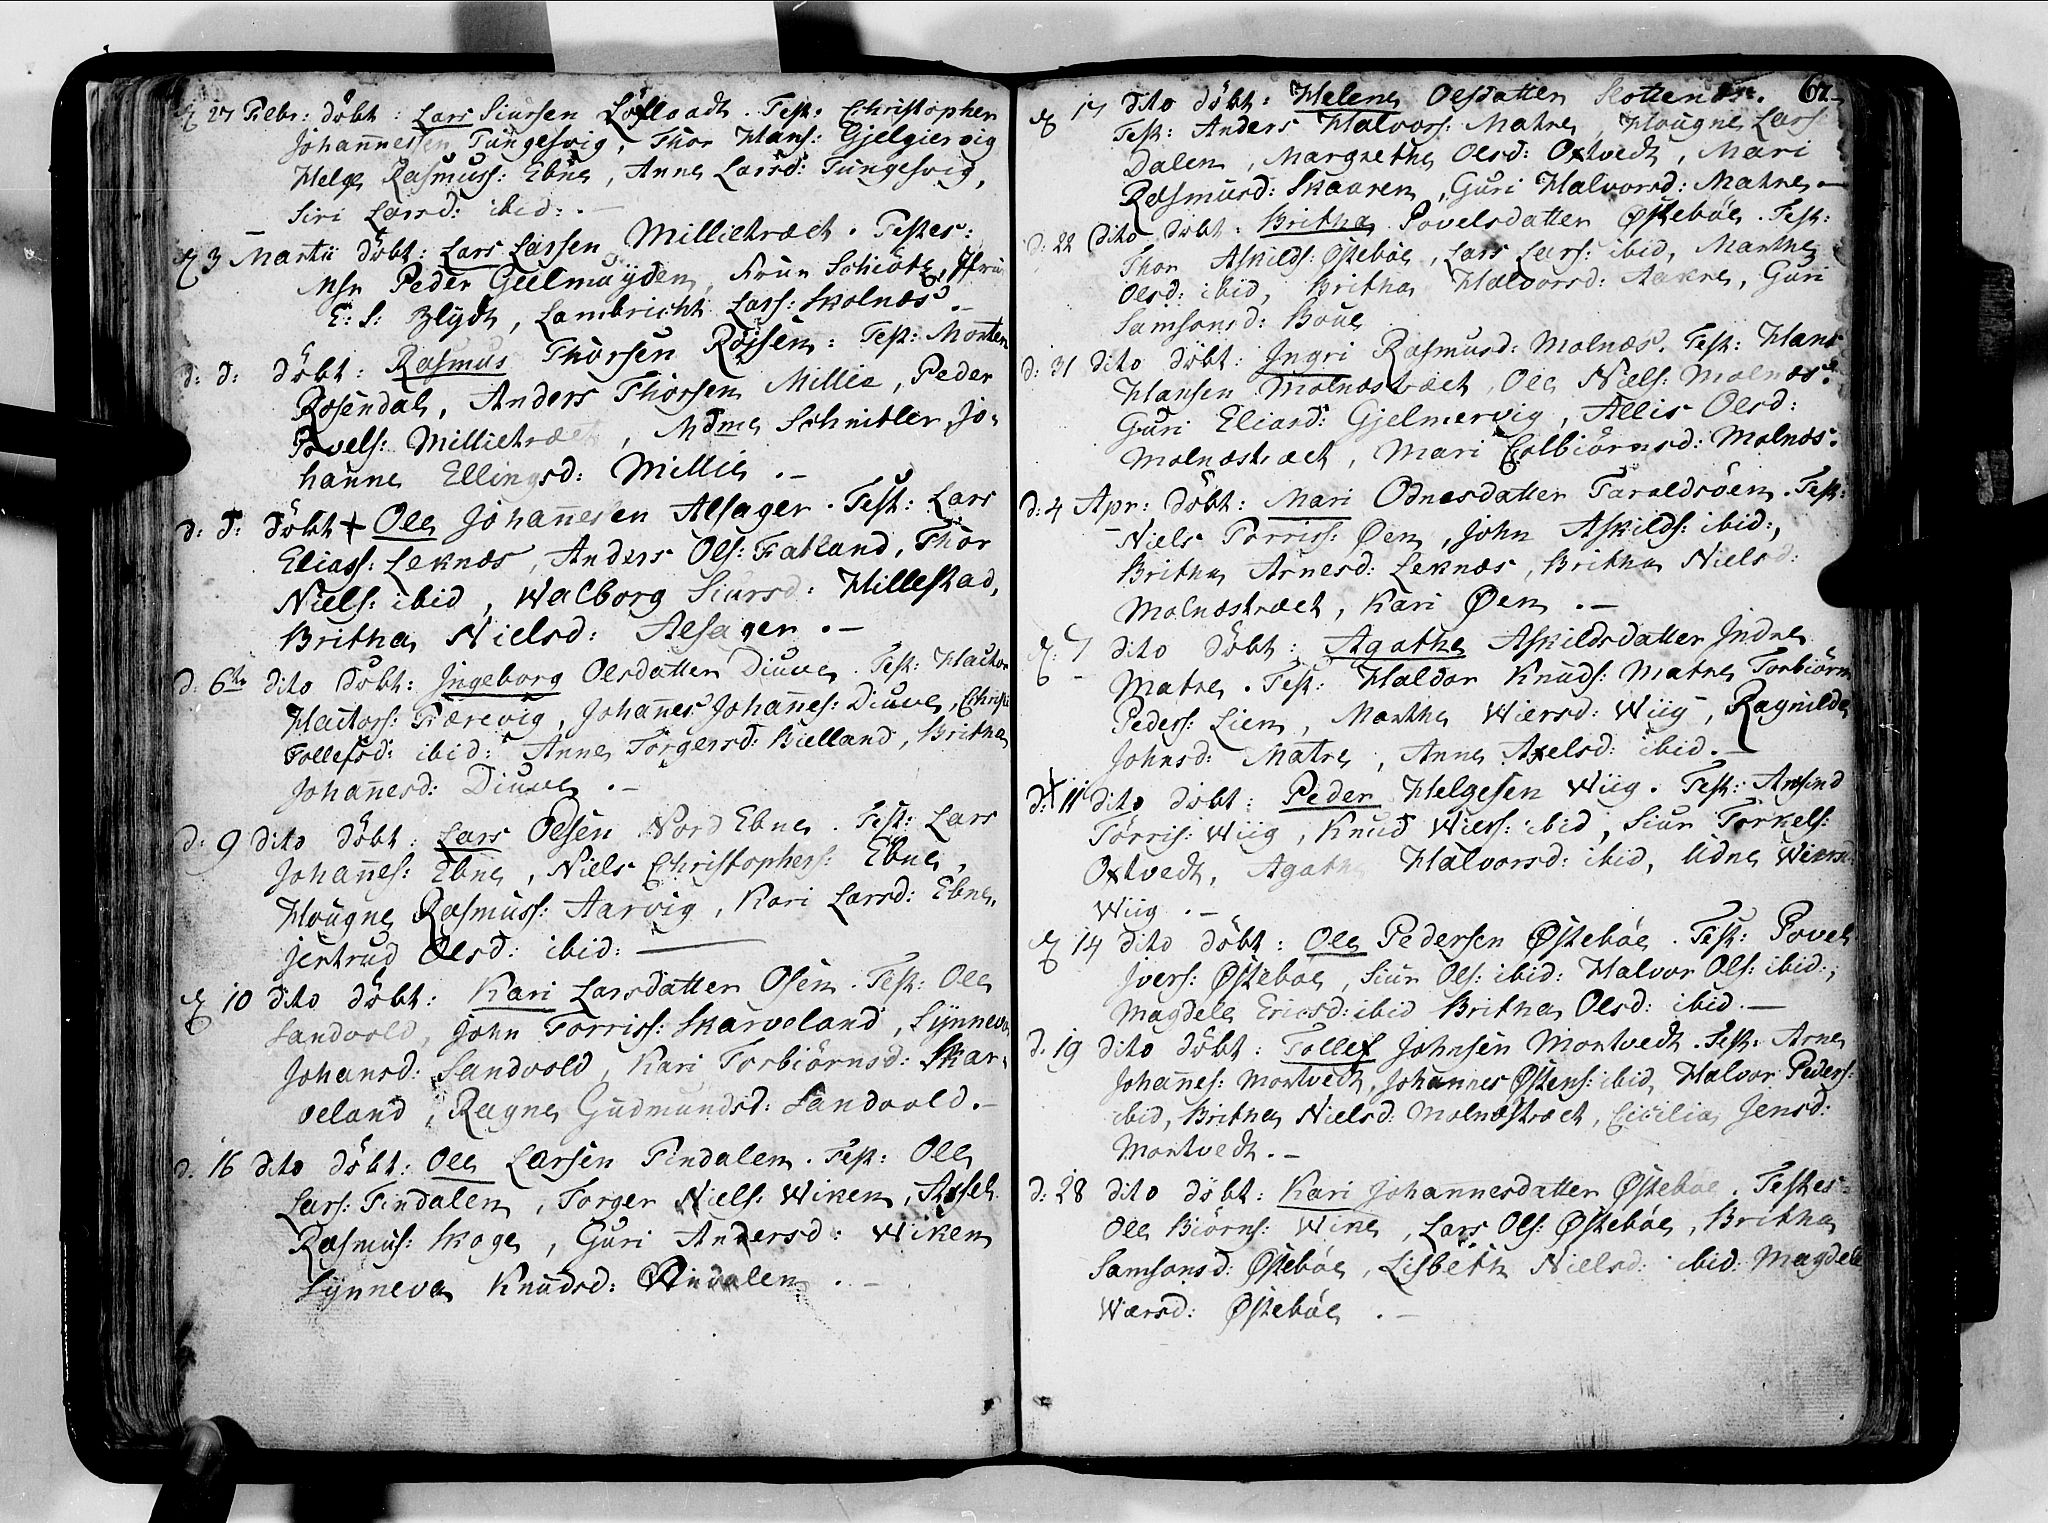 d. 27 Febr: döbt: Lars Siursen Löfloadt. Test: Christopher
Johannessen Tungesvig, Thor Hans: Gjelgiervig
Helge Rasmuss: Ebne, Anne Larsd: Tungesvig,
Siri Larsd: ibid: . —
d. 3 Martii döbt: Lars Larsen Millietræet. Testes:
Msr Peder Gielmuyden, Frue Schiötz, Jfru
E: S: Blydt, Lambricht Larss: Skolnæs. —
d: d: döbt: Rasmus Thorsen Röjsen: Test: Morten
Rosendal, Anders Thorsen Millie, Peder
Povels: Millietræet, Mdme Schnitler, Jo-
hanne Ellingsd: Millie . —
d: d: döbt + Ole Johannesen Alsager. Test: Lars
Eliass: Leknæs, Anders Ols: Fatland, Thor
Niels: ibid, Walborg Siursd: Hillestad,
Britha Nielsd: Alsager . —
d. 6te dito döbt: Ingeborg Olsdatter Diuve. Test: Hactor
Hactors: Færevig, Johannes Johannes: Diuve, Christi
Tollefsd: ibid: Anne Torgersd: Bielland, Britha
Johannesd: Diuve . —
d: 9 dito döbt: Lars Olsen Nord Ebne. Test: Lars
Johannes: Ebne, Niels Christophers: Ebne,
Hougne Rasmuss: Aarvig, Kari Larsd: Ebne,
Jertrud Olsd: ibid: —
d. 10 dito döbt: Kari Larsdatter Osen. Test: Ole
Sandvold, John Torriss: Skarveland, Synneva
Johansd: Sandvold, Kari Torbiörnsd: Skar-
veland, Ragne Gudmundsd: Sandvold. —
d. 16 dito döbt: Ole Larsen Tindalen. Test: Ole
Lars: Tindalen, Torger Niels: Wiken, Axsel
Rasmus: Skoge, Guri Andersd: Wiken
Synneva Knudsd: Tindalen . —
d. 17 dito döbt: Helene Olsdatter Slottenæs. 67.
Test: Anders Halvors: Matre, Hougne Lars:
Dalen, Margrethe Olsd: Oxtvedt, Mari
Rasmusd: Skaaren, Guri Halvorsd: Matre. —
d: 22 dito döbt: Britha Povelsdatter Östeböe. Test:
Thor Askilds: Östeböe, Lars Lars: ibid, Marthe
Olsd: ibid, Britha Halvorsd: Aakre, Guri
Samsonsd: Boue
d: 31 dito döbt: Ingri Rasmusd: Molnæs. Test: Hans
Hansen Molnæstræet, Ole Niels: Molnæs:
Guri Eliasd: Gjelmervig, Allis Olsd:
Molnæstræet, Mari Colbiörnsd: Molnæs.
d: 4 Apr: döbt: Mari Odnesdatter Taraldsöen. Test:
Niels Torriss: Øen, John Askilds: ibid:,
Britha Arnesd: Leknæs, Britha Nielsd:
Molnæstræet, Kari Øen . —
d. 7 dito döbt: Agathe Askildsdatter Indre
Matre. Test: Haldor Knuds: Matre Torbiörn
Peders: Lien, Marthe Wiersd: Wiig, Ragnilde
Johnsd: Matre, Anne Axelsd: ibid. —
d: 11 dito döbt: Peder Helgesen Wiig. Test: Amsind
Törris: Wiig, Knud Wiers: ibid, Siur Torkels:
Oxtvedt, Agathe Halvorsd: ibid, Udne Wiersd:
Wiig . —
d. 14 dito döbt: Ole Pedersen Östeböe. Test: Povel
Ivers: Östeböe, Siur Ols: ibid: Halvor Ols: ibid:;
Magdele Ericsd: ibid Britha Olsd: ibid. —
d. 19 dito döbt: Tollef Johnsen Montvedt. Test: Arne
Johannes: Montvedt, Johannes Östens: ibid, Halvor Peders:
ibid, Britha Nielsd: Molnæstræet, Cicilia Jensd:
Montvedt. —
d: 28 dito döbt: Kari Johannesdatter Östeböe. Testes:
Ole Biörns: Wine, Lars Ols: Östeböe, Britha
Samsonsd: Östeböe, Lisbeth Nielsd: ibid: Magdele
Wærsd: Östeböe . —